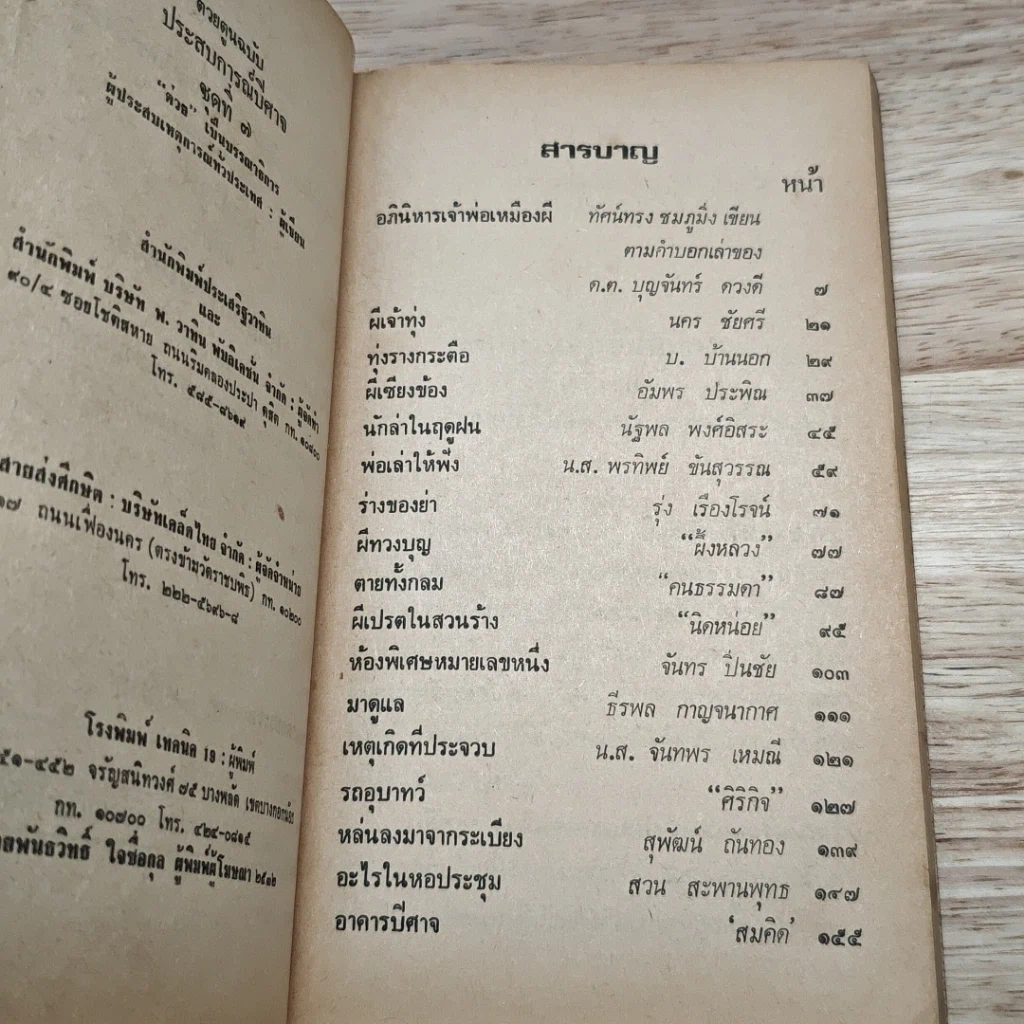 ต่วยตูนฉบับ
ประสบการณ์ปีศาจ
ชุดที่ ๗
“ต่วย” เป็นบรรณาธิการ
ผู้ประสมเหตุการณ์ทั่วประเทศ : ผู้เขียน
สำนักพิมพ์ประเสริฐวาทิน
และ
สำนักพิมพ์ บริษัท พ. วาทิน พับลิเคชัน จำกัด : ผู้จัดทำ
๙๐/๔ ซอยโชติสหาย ถนนริมคลองประปา ดุสิต กท. ๑๐๘๐๐
โทร. ๕๘๕-๙๖๑๙
สายส่งศึกษิต : บริษัทเคล็ดไทย จำกัด : ผู้จัดจำหน่าย
๑๗ ถนนเฟื่องนคร (ตรงข้ามวัดราชบพิธ) กท. ๑๐๒๐๐
โทร. ๒๒๒-๕๖๙๖-๘
โรงพิมพ์ เทคนิค 19 : ผู้พิมพ์
๕๑-๔๕๒ จรัญสนิทวงศ์ ๗๕ บางพลัด เขตบางกอกน้อย
กท. ๑๐๗๐๐ โทร. ๔๒๔-๐๘๑๕
ใจซื่อกุล ผู้พิมพ์ผู้โฆษณา
สารบาญ
หน้า
อภินิหารเจ้าพ่อเหมืองผี ทัศน์ทรง ชมภูมิ่ง เขียน
ตามคำบอกเล่าของ
ด.ต. บุญจันทร์ ดวงดี ๗
ผีเจ้าทุ่ง นคร ชัยศรี ๒๑
ทุ่งรางกระตือ บ. บ้านนอก ๒๙
ผีเซียงข้อง อัมพร ประพิณ ๓๗
นักล่าในฤดูฝน นัฐพล พงศ์อิสระ ๔๕
พ่อเล่าให้ฟัง น.ส. พรทิพย์ ขันสุวรรณ ๕๙
ร่างของย่า รุ่ง เรืองโรจน์ ๗๑
ผีทวงบุญ “ผึ้งหลวง” ๗๗
ตายทั้งกลม “คนธรรมดา” ๘๗
ผีเปรตในสวนร้าง “นิดหน่อย” ๙๕
ห้องพิเศษหมายเลขหนึ่ง จันทร ปิ่นชัย ๑๐๓
มาดูแล ธีรพล กาญจนากาศ ๑๑๑
เหตุเกิดที่ประจวบ น.ส. จันทพร เหมณี ๑๒๑
รถอุบาทว์ “ศิริกิจ” ๑๒๗
หล่นลงมาจากระเบียง สุพัฒน์ ถันทอง ๑๓๙
อะไรในหอประชุม สวน สะพานพุทธ ๑๔๗
อาคารปีศาจ ‘สมคิด’ ๑๕๕